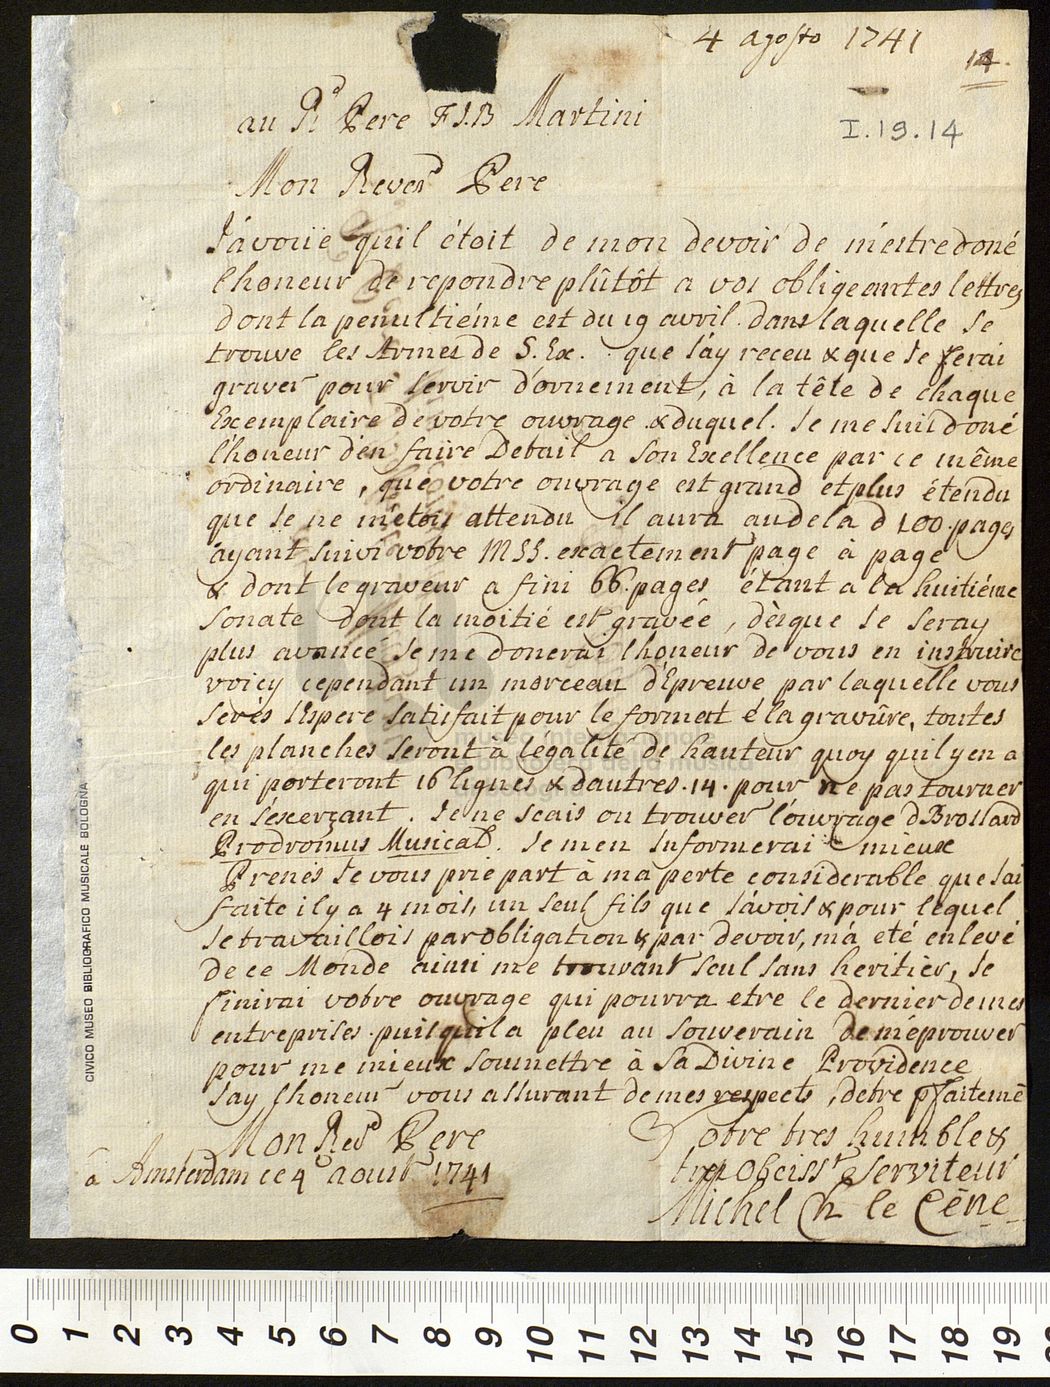 4 agosto 1741
14.
I.19.14
au Rd Pere F J.B Martini
Mon Reverd Pere
J'avoüe quil étoit de mon devoir de m'estre doné
l'honeur de repondre plûtôt a vos obligeantes lettres
dont la penultiéme est du 19 avril. dans laquelle se
trouve les Armes de S. Ex. que J'ay receu & que Je ferai
graver pour servir d'ornement, à la tête de chaque
Exemplaire de votre ouvrage & duquel. Je me suis doné
l'honeur d'en faire Detail a Son Exellence par ce même
ordinaire, que votre ouvrage est grand et plus étendu
que Je ne m'etois attendu il aura au dela d 100. pages
ayant suivi votre MSS. exactement page à page
& dont le graveur a fini 66. pages étant a la huitiéme
Sonate dont la moitié est gravée, dèsque Je Seray
plus avancé Je me donerai l'honeur de vous en instruire
voicy cependant un morceau d'Epreuve par laquelle vous
Serés J'Espere Satisfait pour le format é la gravûre, toutes
les planches Seront à legalité de hauteur quoy quil y en a
qui porteront 16 lignes & dautres. 14. pour ne pas tourner
en S'éxerçant. Je ne scais ou trouver l'ouvrage d Brossard
Prodromus Musical. Je men Informerai mieux
Prenés Je vous prie part à ma perte considerable que J'ai
faite il y a 4 mois, un Seul fils que J'avois & pour lequel
Je travaillois par obligation & par devoir, m'a eté enlevé
de ce Monde ainsi me trouvant Seul Sans heritier, Je
finirai votre ouvrage qui pourra etre le dernier de mes
entreprises. puisquil a pleu au Souverain de m'éprouver
pour me mieux Soumettre à Sa Divine Providence
J'ay l'honeur vous assurant de mes respects, d'etre pfaitemē
Mon Revd Pere
Votre tres humble &
tres Obeisst Serviteur
â Amsterdam ce 4e aoust 1741
Michel Ch le Céne
CIVICO MUSEO BIBLIOGRAFICO MUSICALE BOLOGNA
museo internazionale
e biblioteca della musica
0 1 2 3 4 5 6 7 8 9 10 11 12 13 14 15 16 17 18 19